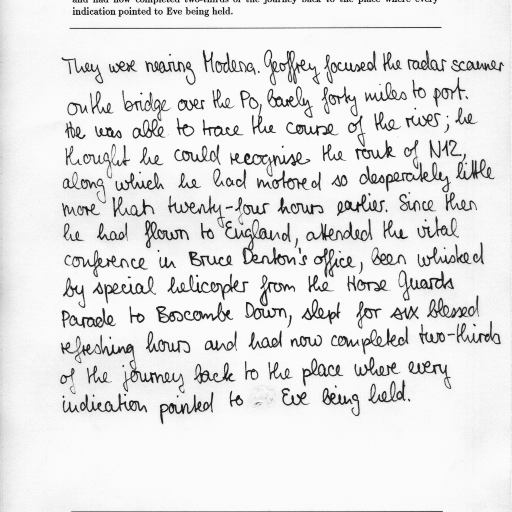 and had now completed two-thirds of the journey back to the place where every
indication pointed to Eve being held.
They were nearing Modena. Geoffrey focused the radar scanner
on the bridge over the Po, barely forty miles to port.
He was able to trace the course of the river; he
thought he could recognise the route of N12,
along which he had motored so desperately little
more than twenty-four hours earlier. Since then
he had flown to England, attended the vital
conference in Bruce Denton's office, been whisked
by special helicopter from the Horse Guards
Parade to Boscombe Down, slept for six blessed
refreshing hours and had now completed two-thirds
of the journey back to the place where every
indication pointed to Eve being held.